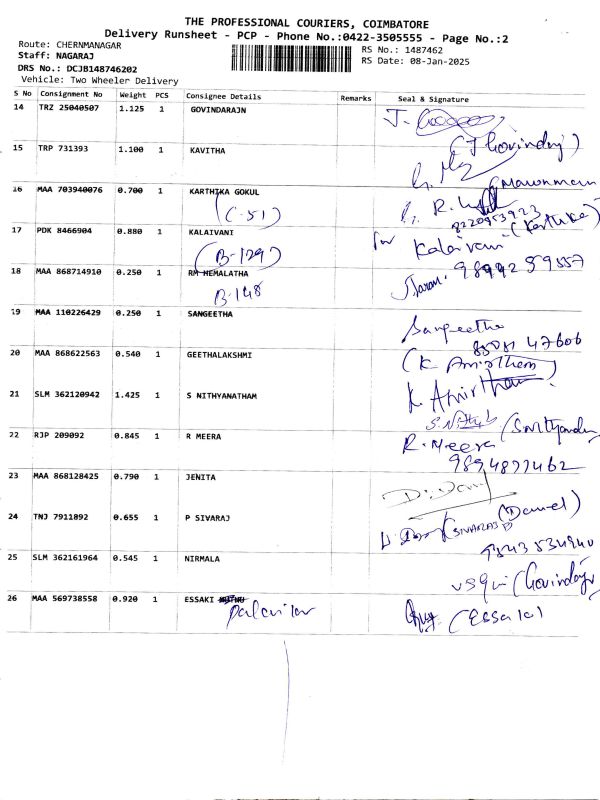 THE PROFESSIONAL COURIERS, COIMBATORE
Delivery Runsheet - PCP - Phone No.:0422-3505555 - Page No.:2
Route: CHERNMANAGAR
RS No.: 1487462
Staff: NAGARAJ
RS Date: 08-Jan-2025
DRS No.: DCJB148746202
Vehicle: Two Wheeler Delivery
S No Consignment No Weight PCS Consignee Details Remarks Seal & Signature
14 TRZ 25040507 1.125 1 GOVINDARAJN
J.
(J Govindraj)
15 TRP 731393 1.100 1 KAVITHA
16 MAA 703940076 0.700 1 KARTHIKA GOKUL
(C-51)
8220953923
(Karthika)
17 PDK 8466904 0.880 1 KALAIVANI
for Kalaivani
(B-129)
9899259557
18 MAA 868714910 0.250 1 RM HEMALATHA
B-148
19 MAA 110226429 0.250 1 SANGEETHA
Sangeetha
47606
20 MAA 868622563 0.540 1 GEETHALAKSHMI
(K Amirtham)
21 SLM 362120942 1.425 1 S NITHYANATHAM
K Amirtham
22 RJP 209092 0.845 1 R MEERA
R. Meera
9894877462
23 MAA 868128425 0.790 1 JENITA
(Daniel)
24 TNJ 7911892 0.655 1 P SIVARAJ
(SIVARAJ P)
9843534940
25 SLM 362161964 0.545 1 NIRMALA
(Govindaj)
26 MAA 569738558 0.920 1 ESSAKI
(Essaki)